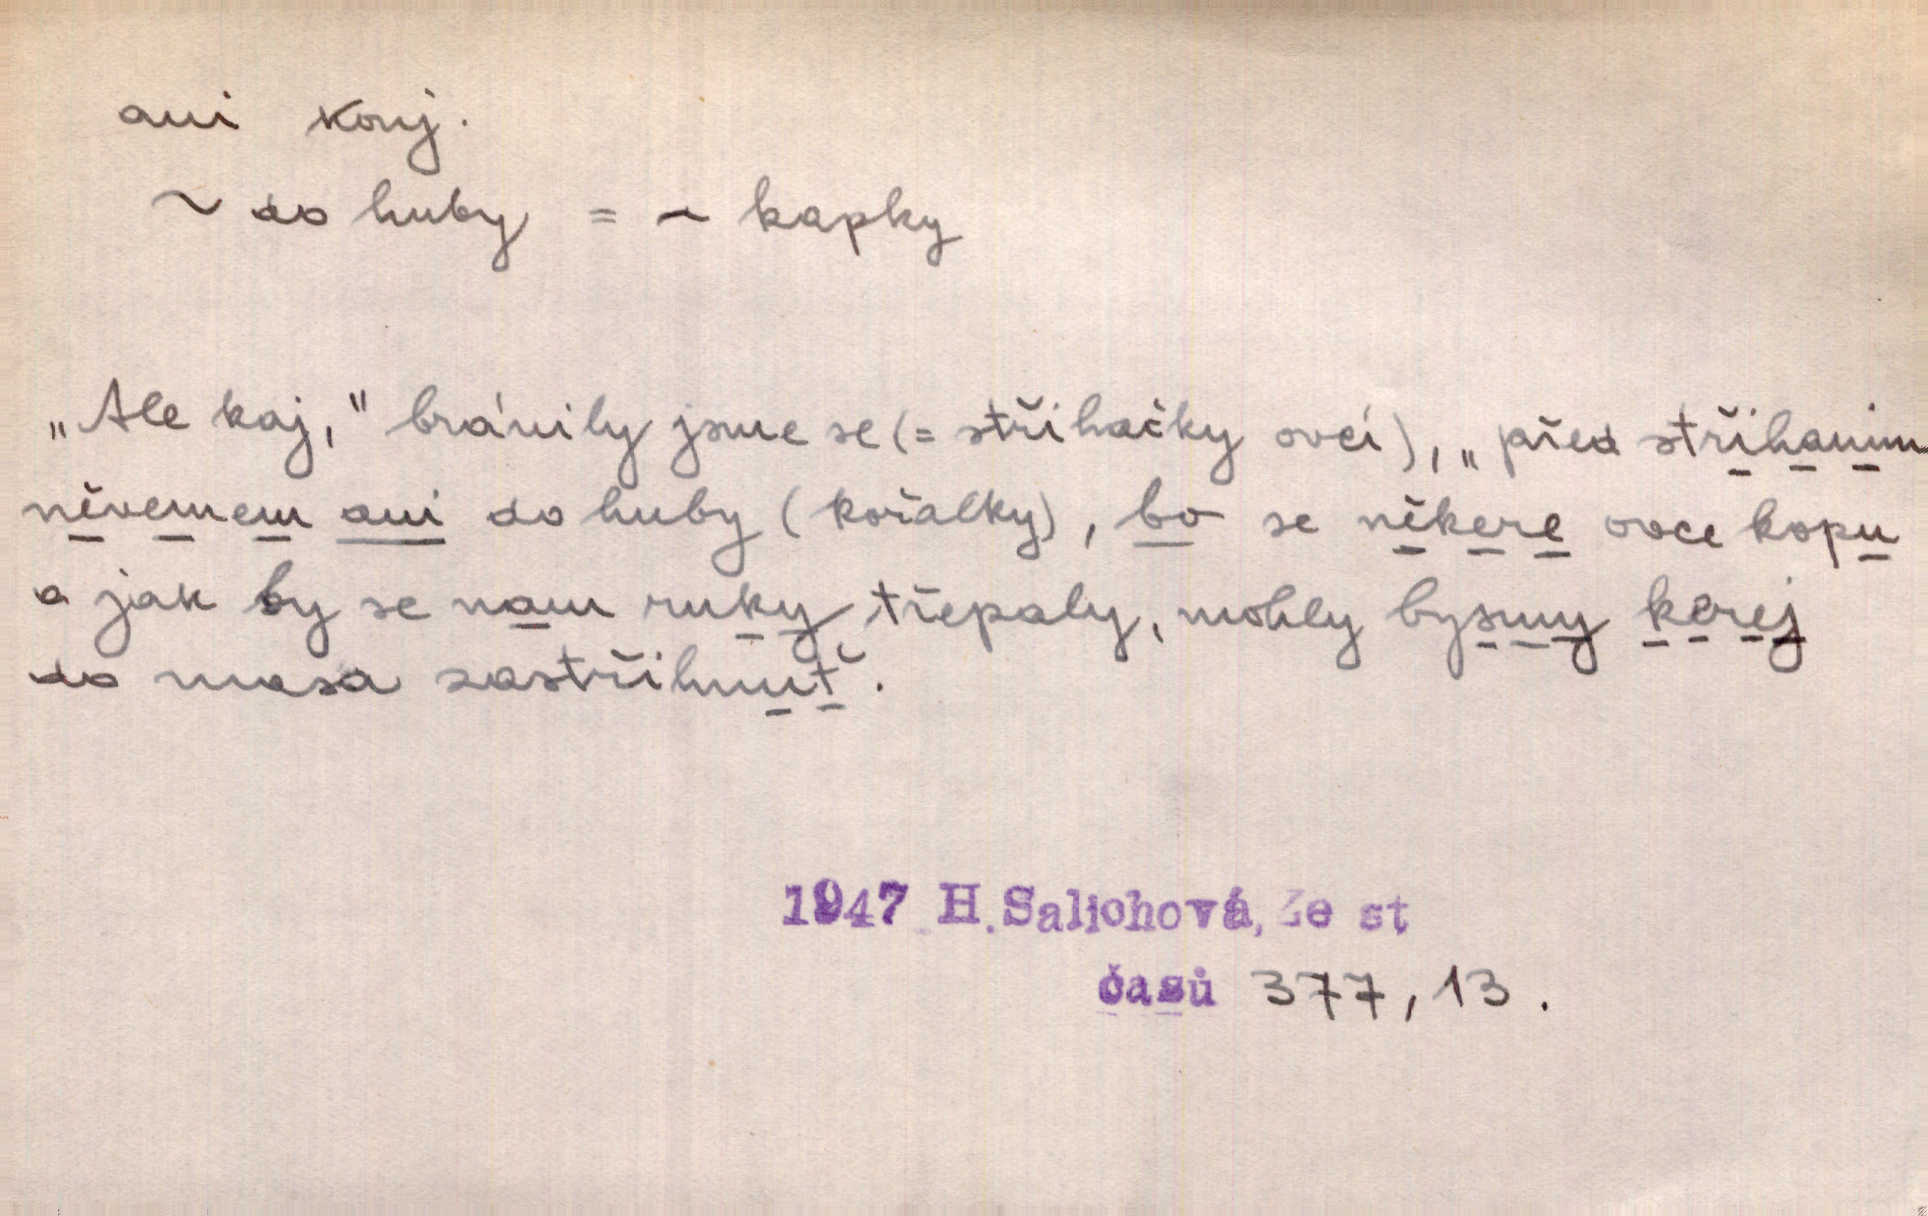 ani konj.
~ do huby = ~ kapky
„Ale kaj," bránily jsme se (= střihačky ovcí), „před střihanim
něvemem ani do huby (kořalky), bo se někere ovce kopu
a jak by se nam ruky třepaly, mohly bysmy kerej
do masa zastřihnuť.
1947 H.Salichová, Ze st
časů 377, 13.